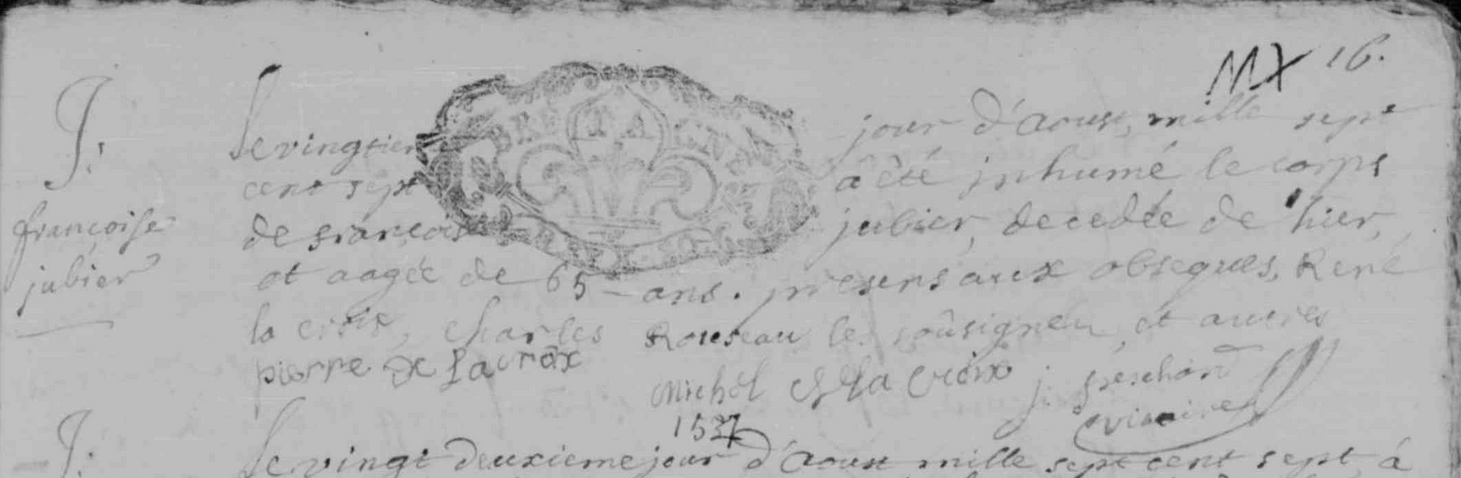 MX 16.
J.
françoise
jubier
BRETAGNE
Le vingtiem jour d'Aoust, mille sept
cent sept a été jnhumé le corps
de francois jubier, decedée de hier,
et aagée de 65 ans. presens aux obseques, René
la croix, Charles Rousseau les soûsignéz, et autres
pierre De Lacroix
Michel De la Croix j.
vicaire
1537
J.
Le vingt deuxieme jour d'Aoust mille sept cent sept, à